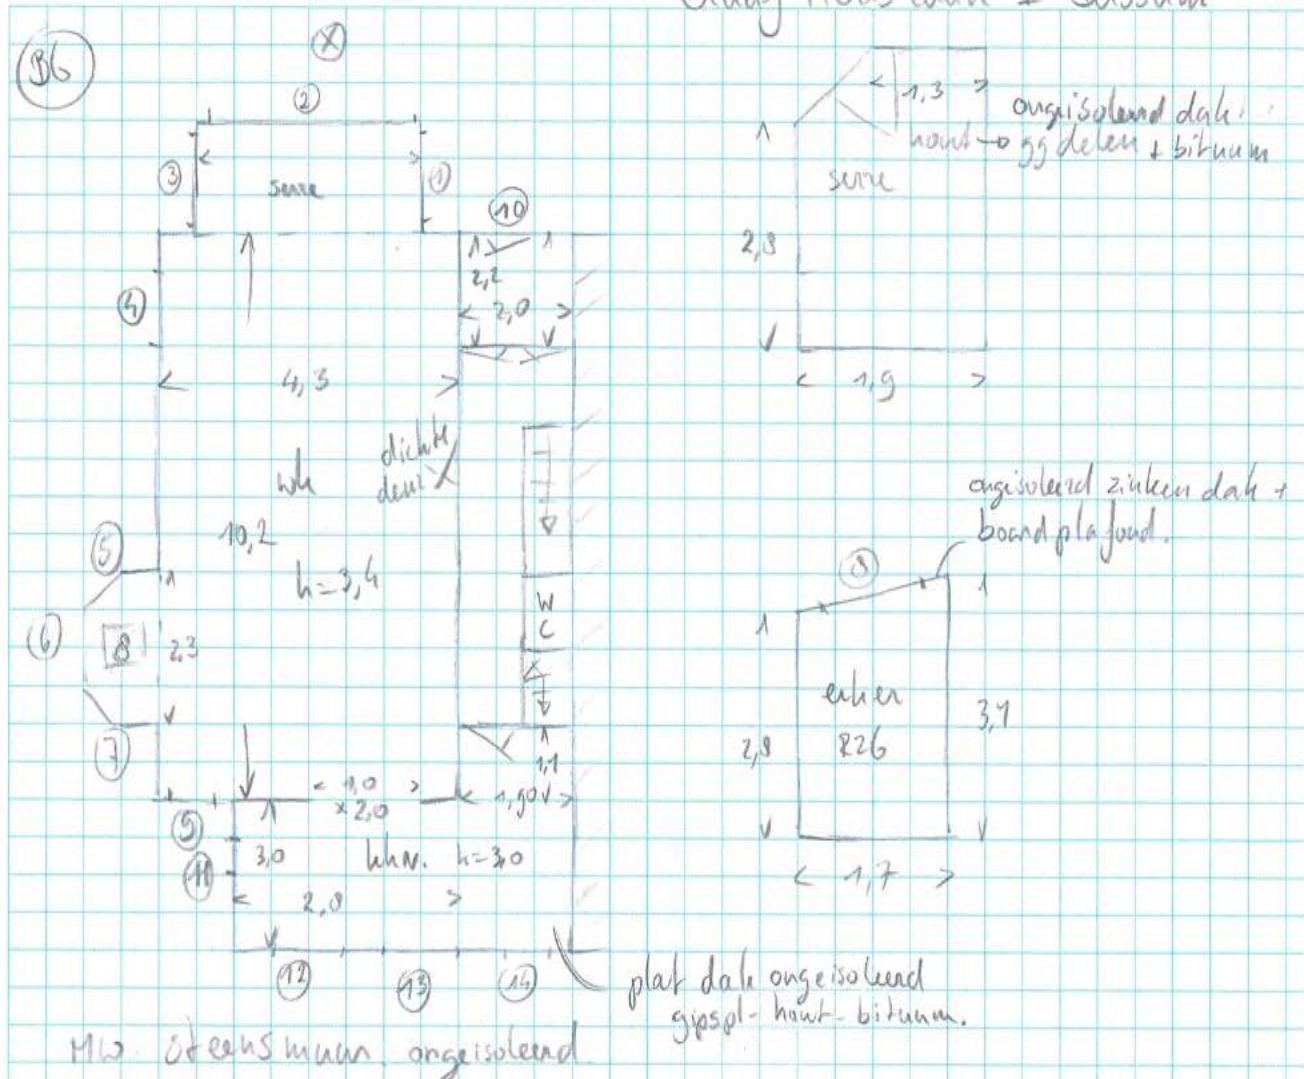 B6
X
2
3
serre
1
10
2,2
2,0
4
4,3
dichte
deur
wk
10,2
h=3,4
5
6
8
2,3
W
C
7
1,1
1,0
x 2,0
1,90
9
3,0
kkn. h=3,0
11
2,8
12
13
14
plat dak ongeisoleerd
gipspl- hout- bitumm.
MW steensmuur ongeisoleerd
1,3
ongeisoleerd dak
hout → gg delen + bitumm
serre
2,8
1,9
ongeisoleerd zinken dak +
board plafond.
8
erker
R26
2,8
3,1
1,7